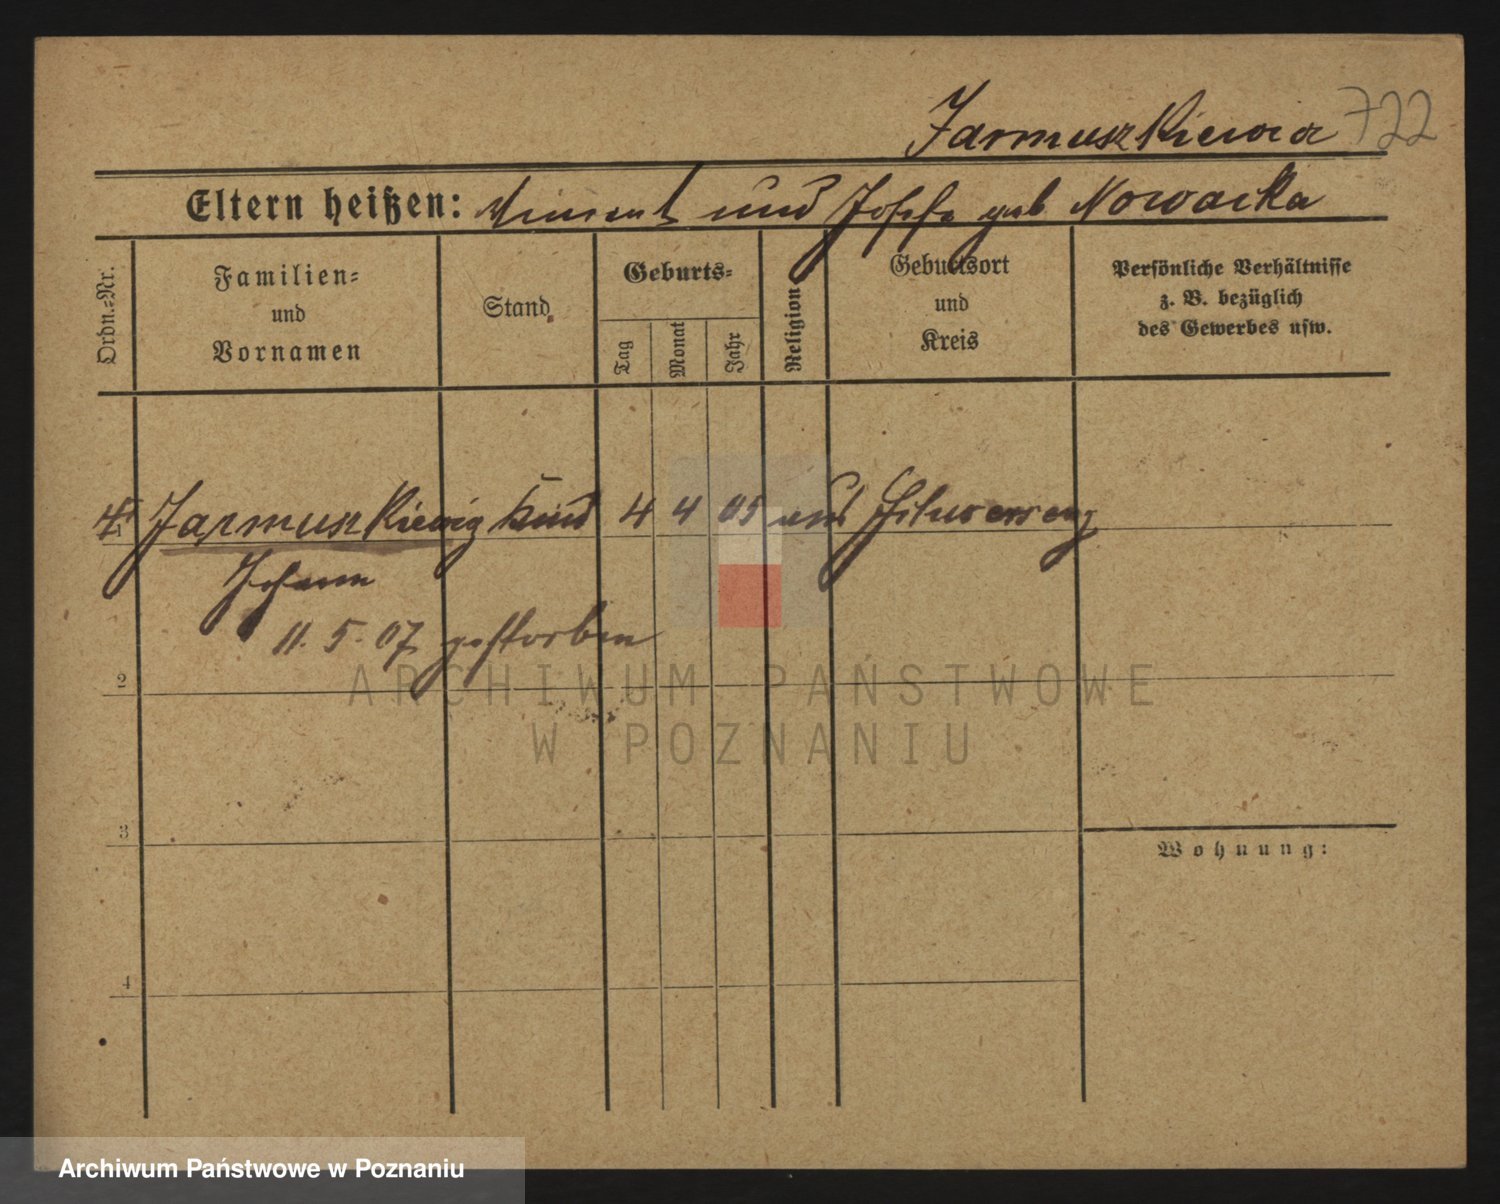 Jarmuszkiewicz 722
Eltern heißen: Vincent und Josefa geb Nowacka
Ordn.-Nr.
Familien-
und
Vornamen
Stand
Geburts-
Tag
Monat
Jahr
Religion
Geburtsort
und
Kreis
Persönliche Verhältnisse
z. B. bezüglich
des Gewerbes usw.
1 Jarmuszkiewicz Kind 4 4 05
Johann
11. 5. 07 gestorben
2
ARCHIWUM PAŃSTWOWE
W POZNANIU
3
Wohnung:
4
Archiwum Państwowe w Poznaniu